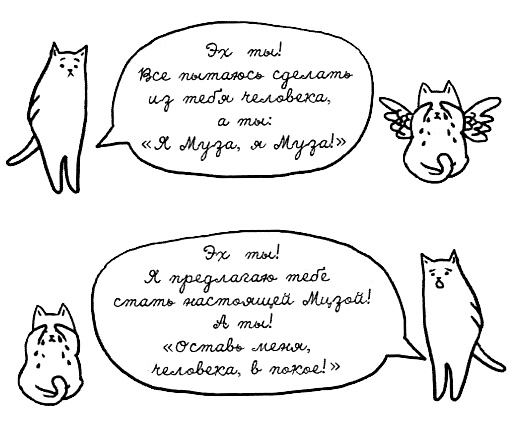 Эх ты!
Все пытаюсь сделать
из тебя человека,
а ты:
«Я Муза, я Муза!»
Эх ты!
Я предлагаю тебе
стать настоящей Мцзой!
А ты!
«Оставь меня,
человека, в покое!»